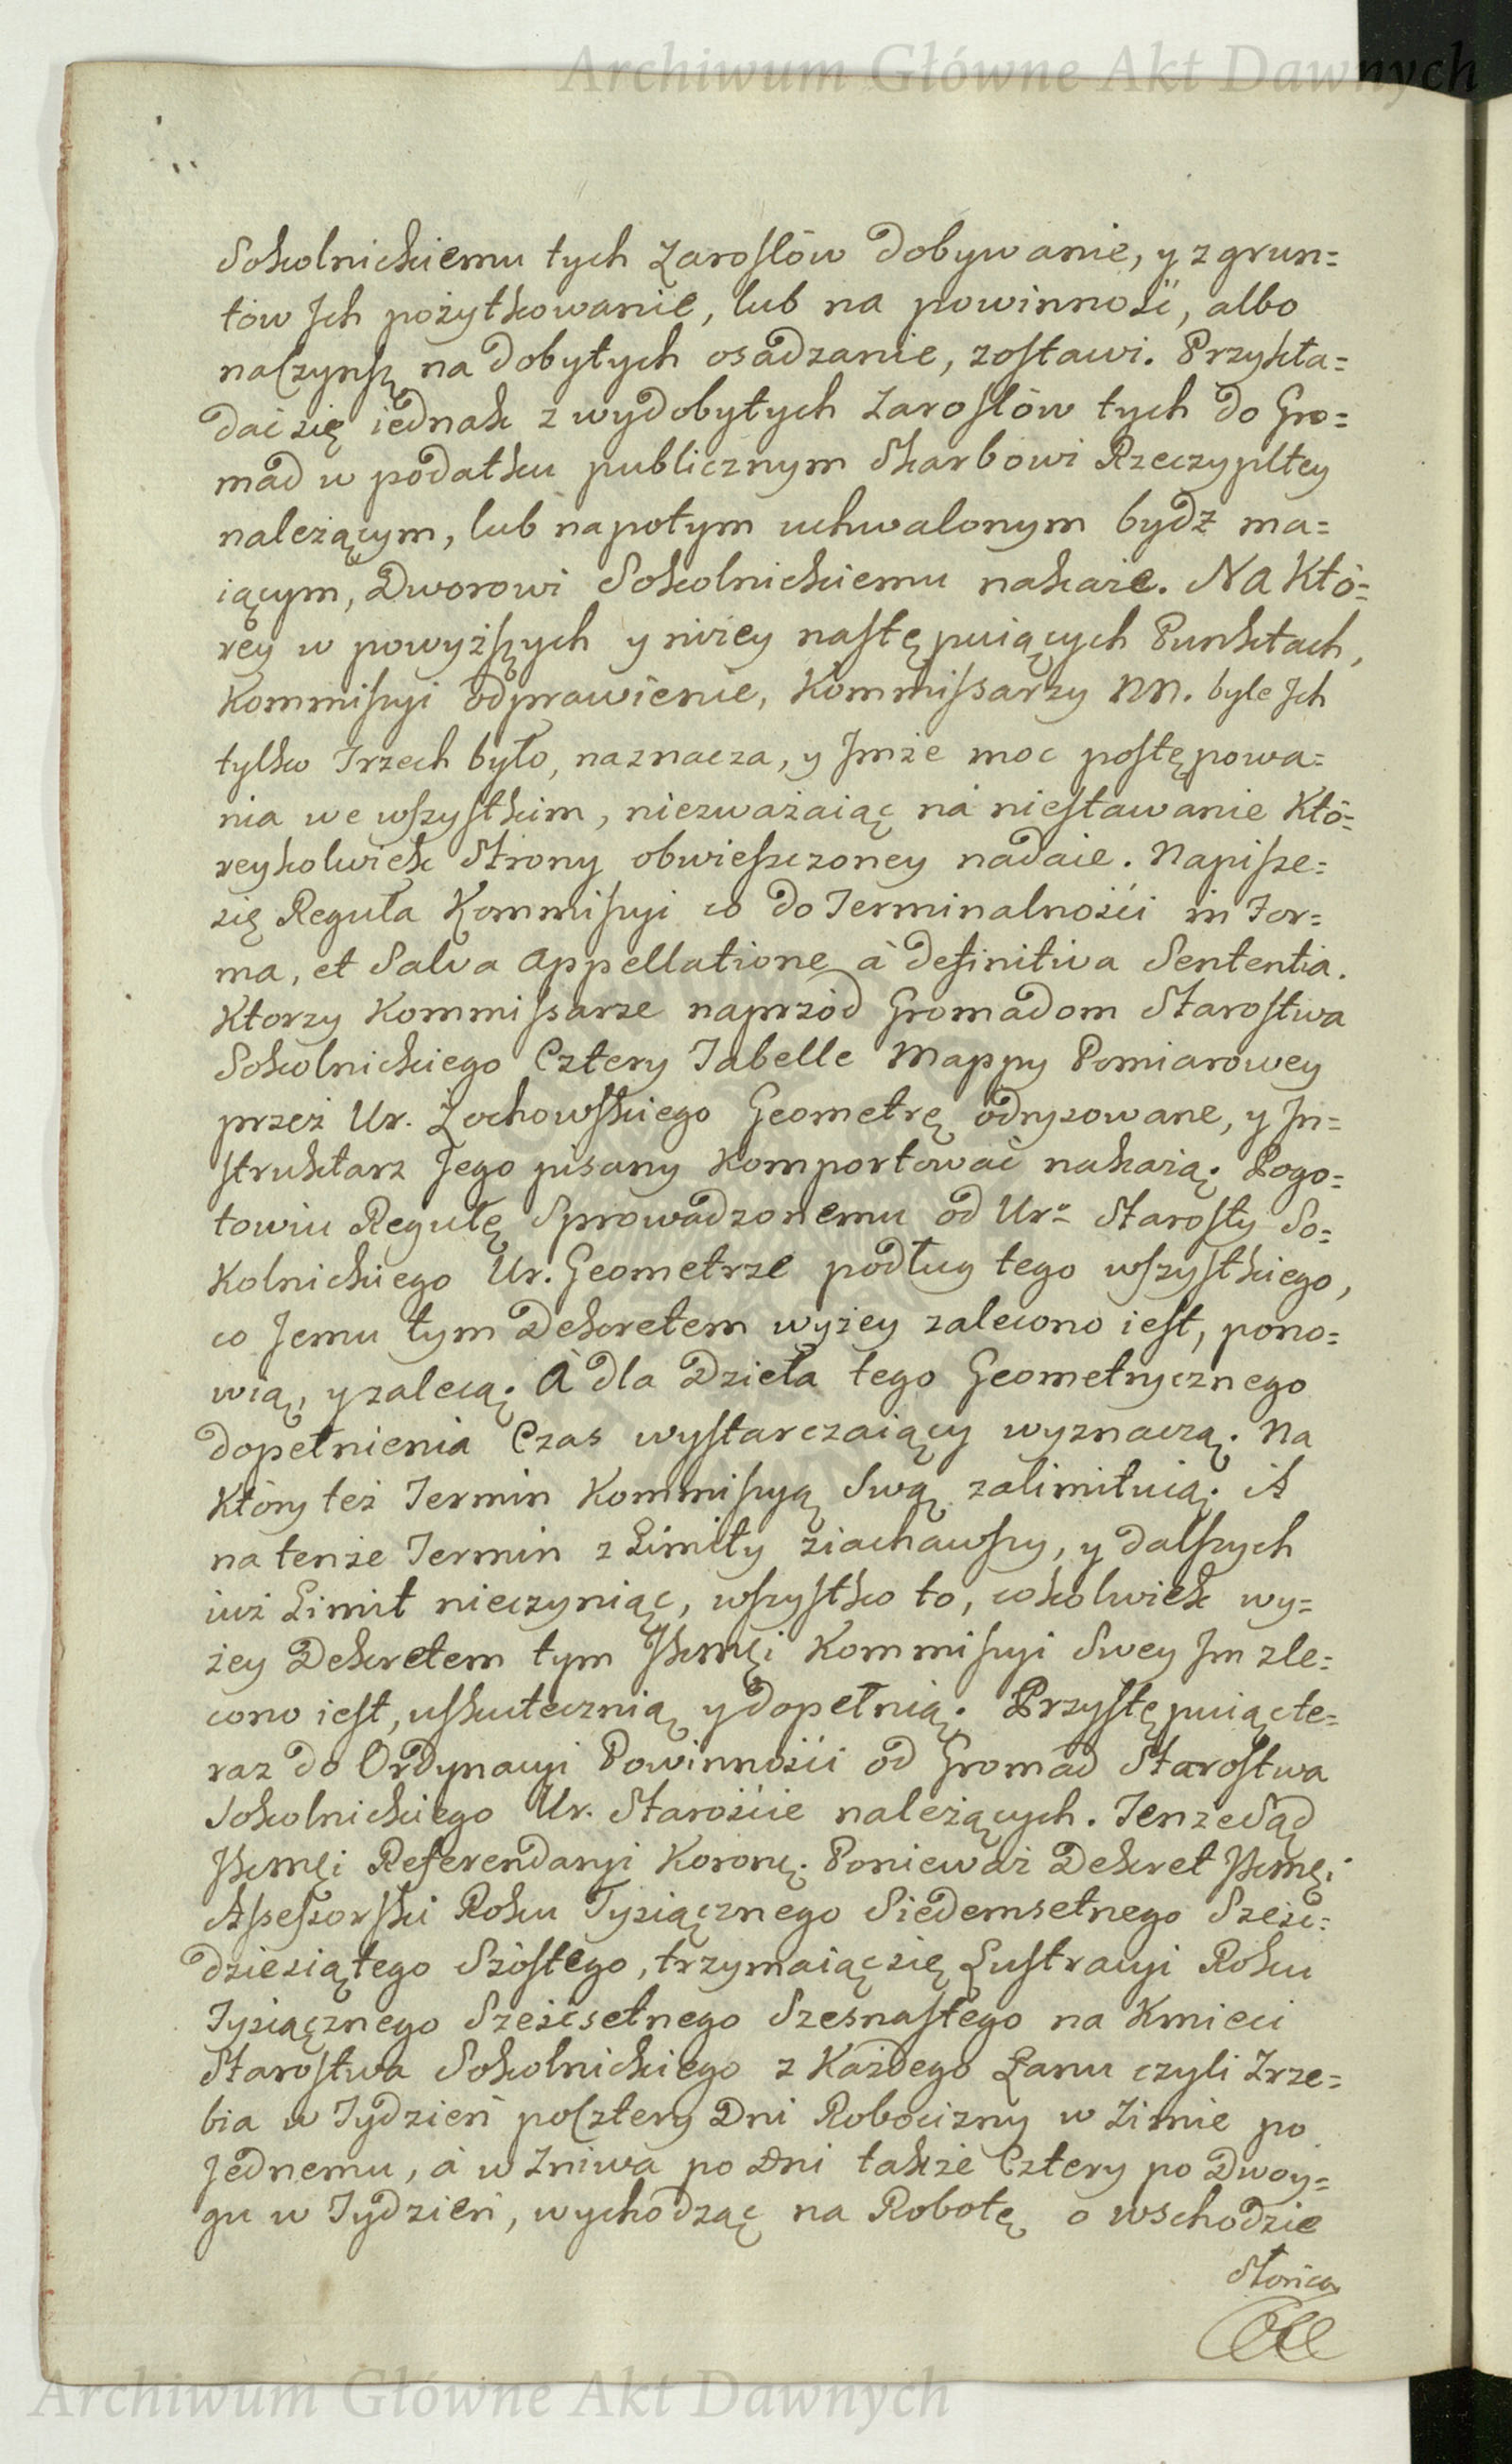 Archiwum Główne Akt Dawnych
Sokolnickiemu tych Zarosłów dobywanie, y z grun=
tów Jch pożytkowanie, lub na powinność, albo
na Czynsz na dobytych osadzanie, zostawi. Przykła=
dać się iednak z wydobytych Zarosłów tych do Gro=
mad w podatku publicznym Skarbowi Rzeczypltey
należącym, lub napotym uchwalonym bydź ma=
iącym, Dworowi Sokolnickiemu nakaże. Na Któ=
rey w powyższych y niżey następuiących Punktach,
Kommissyi odprawienie, Kommissarzy NN. byle Jch
tylko Trzech było, naznacza, y Jmże moc postępowa=
nia we wszystkim, niezważaiąc na niestawanie Któ=
reykolwiek Strony obwieszczoney nadaie. Napisze=
się Reguła Kommissyi co do Terminalności in For=
ma, et Salva Appellatione à definitiva Sententia.
Ktorzy Kommissarze naprzód Gromadom Starostwa
Sokolnickiego Cztery Tabelle Mappy Pomiarowey
przez Ur. Żochowskiego Geometrę odrysowane, y Jn=
struktarz Jego pisany Komportować nakażą. Pogo=
towiu Regułę Sprowadzonemu od Urº Starosty So=
kolnickiego Ur. Geometrze podług tego wszystkiego,
co Jemu tym Dekretem wyżey zalecono iest, pono=
wią, y zalecą. À dla Dzieła tego Geometrycznego
dopełnienia Czas wystarczaiący wyznaczą. Na
Który też Termin Kommissyą Swą zalimituią. A
na tenże Termin z Limity ziachawszy, y dalszych
iuż Limit nieczyniąc, wszystko to, cokolwiek wy=
żey Dekretem tym JKmci Kommissyi Swey Jm zle=
cono iest, uskutecznią y dopełnią. Przystępuiąc te=
raz do Ordynacyi Powinności od Gromad Starostwa
Sokolnickiego Ur. Starościie należących. Tenże Sąd
JKmci Referendaryi Koronę. Ponieważ Dekret JKmci
Assessorski Roku Tysiącznego Siedemsetnego Sześć=
dziesiątego Szóstego, trzymaiąc się Lustracyi Roku
Tysiącznego Sześćsetnego Szesnastego na Kmieci
Starostwa Sokolnickiego z Każdego Łanu czyli Zrze=
bia w Tydzień po Cztery Dni Robocizny w Zimie po
Jednemu, à w Zniwa po Dni także Cztery po Dwoy=
gu w Tydzień, wychodząc na Robotę o wschodzie
Słońca
Archiwum Główne Akt Dawnych